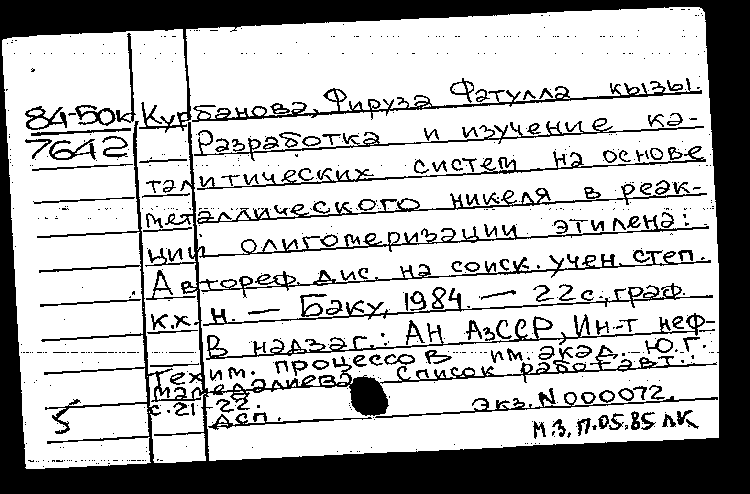 84-БОк
7642
Курбанова, Фируза Фатулла кызы.
Разработка и изучение ка-
талитических систем на основе
металлического никеля в реак-
ции олигомеризации этилена:
Автореф. дис. на соиск. учен. степ.
к.х.н. — Баку, 1984. — 22с., граф.
В надзаг.: АН АзССР, Ин-т неф-
техим. процессов им. акад. Ю.Г.
Мамедалиева. Список работ авт.:
с. 21-22.
Дсп.
экз. N 000072.
5
М.З. 17.05.85 ЛК